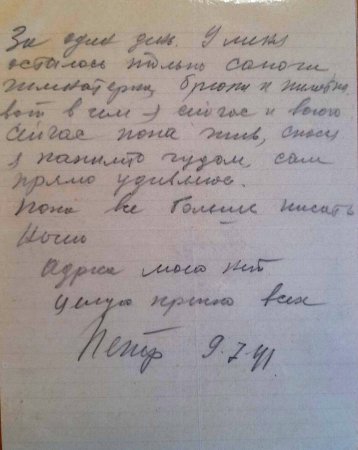 За один день. У меня
осталось только сапоги
гимнатерка, брюки и пилотка
вот в чем я сейчас и воюю
Сейчас пока жив, спасся
я каким то чудом, сам
прямо удивляюсь.
Пока все больше писать
нечего
Адреса моего нет
целую крепко всех
Петр 9.7.41